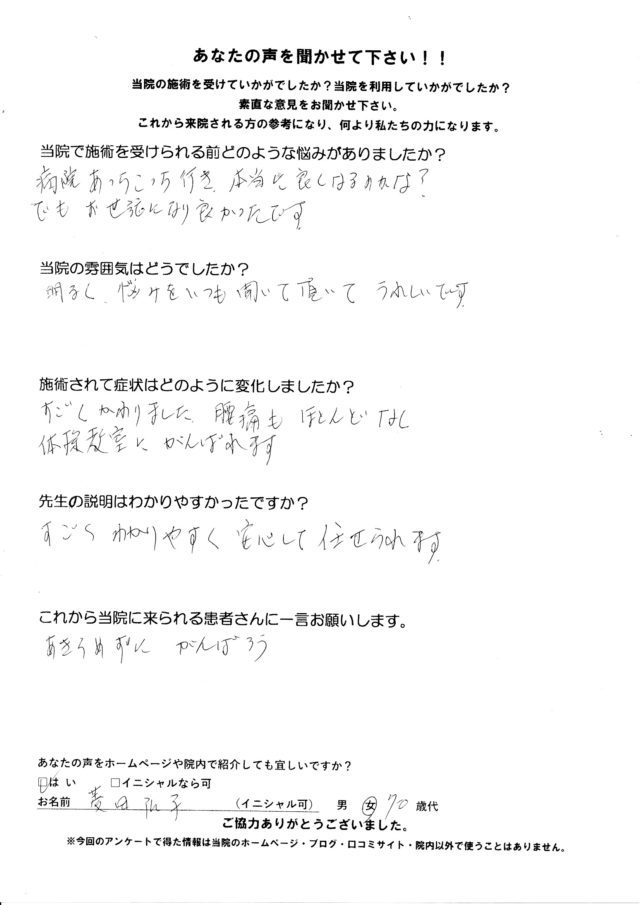 あなたの声を聞かせて下さい！！
当院の施術を受けていかがでしたか？当院を利用していかがでしたか？
素直な意見をお聞かせ下さい。
これから来院される方の参考になり、何より私たちの力になります。
当院で施術を受けられる前どのような悩みがありましたか？
病院あっちこっち行き、本当に良くなるのかな？
でも お世話になり良かったです
当院の雰囲気はどうでしたか？
明るく、悩みをいつも聞いて頂いて うれしいです
施術されて症状はどのように変化しましたか？
すごくかわりました、腰痛も ほとんどなし
体操教室に がんばれます
先生の説明はわかりやすかったですか？
すごく わかりやすく 安心して任せられます
これから当院に来られる患者さんに一言お願いします。
あきらめずに がんばろう
あなたの声をホームページや院内で紹介しても宜しいですか？
□はい □イニシャルなら可
お名前 菱田 子 （イニシャル可） 男 女 70 歳代
ご協力ありがとうございました。
※今回のアンケートで得た情報は当院のホームページ・ブログ・口コミサイト・院内以外で使うことはありません。